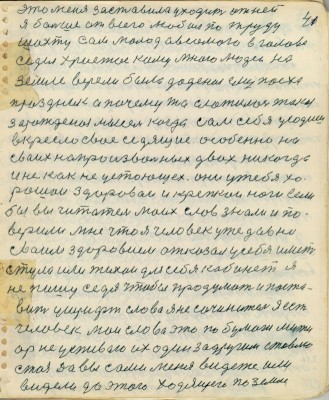 это меня заставила уходит от ней
41
я больше от всего любил по труду
шахту сам молод а всего много в голове
сидел Христос кому много людей на
земле верели была дадена ему пасха
праздник а почему та сложился такая
зарождения мысел когда сам себя усадил
в кресло свое сидящие. особенно на
своих на произвольных двоих никогда
и не как не устающех. они у тебя хо-
рошои здоровои и крепкои ноги если
бы вы читатели моих слов знали и по-
верели мне что я человек уже давно
своим здоровием отказал у себя иметь
стула или тихои для себя кабинет я
не пишу сидя чтобы продумать и поста-
вить у порядок слова я не сочинител я есть
человек мои слова это по бумаги мут
ар не успеваю их один за другим ставлю
стоя да вы сами меня видете или
видели до этого ходящего по земли